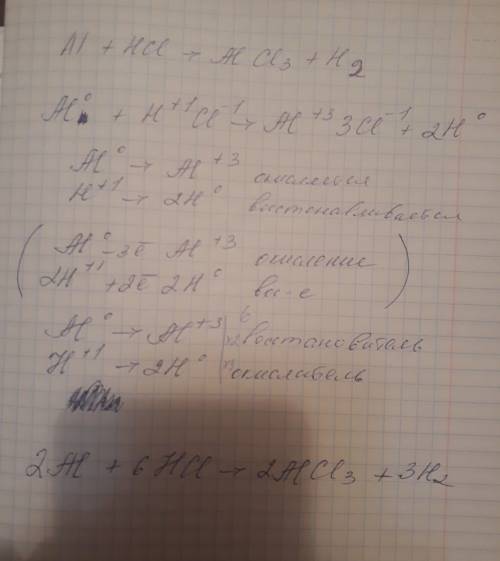 Al + HCl → AlCl₃ + H₂
Al⁰ + H⁺¹Cl⁻¹ → Al⁺³3Cl⁻¹ + 2H⁰
Al⁰ → Al⁺³ окисляеться
H⁺¹ → 2H⁰ востанавливается
Al⁰ -3ē Al⁺³ окисление
2H⁺¹ +2ē 2H⁰ вос-е
6
Al⁰ → Al⁺³ | x2 востановитель
H⁺¹ → 2H⁰ | окислитель
2Al + 6HCl → 2AlCl₃ + 3H₂